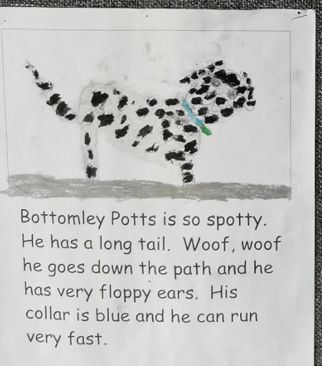 Bottomley Potts is so spotty.
He has a long tail.  Woof, woof
he goes down the path and he
has very floppy ears.  His
collar is blue and he can run
very fast.